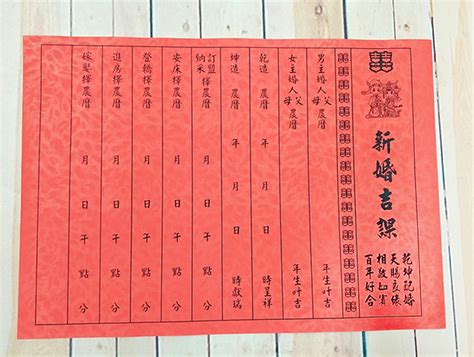 囍
新婚吉課
乾坤 婚
天賜良緣
相敬如賓
百年好合
男主婚人父母農曆 年生叶吉
女主婚人父母農曆 年生叶吉
乾造農曆 年 月 日 時呈祥
坤造農曆 年 月 日 時獻瑞
訂盟納采擇農曆 月 日 午 點 分
安床擇農曆 月 日 午 點 分
登轎擇農曆 月 日 午 點 分
進房擇農曆 月 日 午 點 分
嫁娶擇農曆 月 日 午 點 分